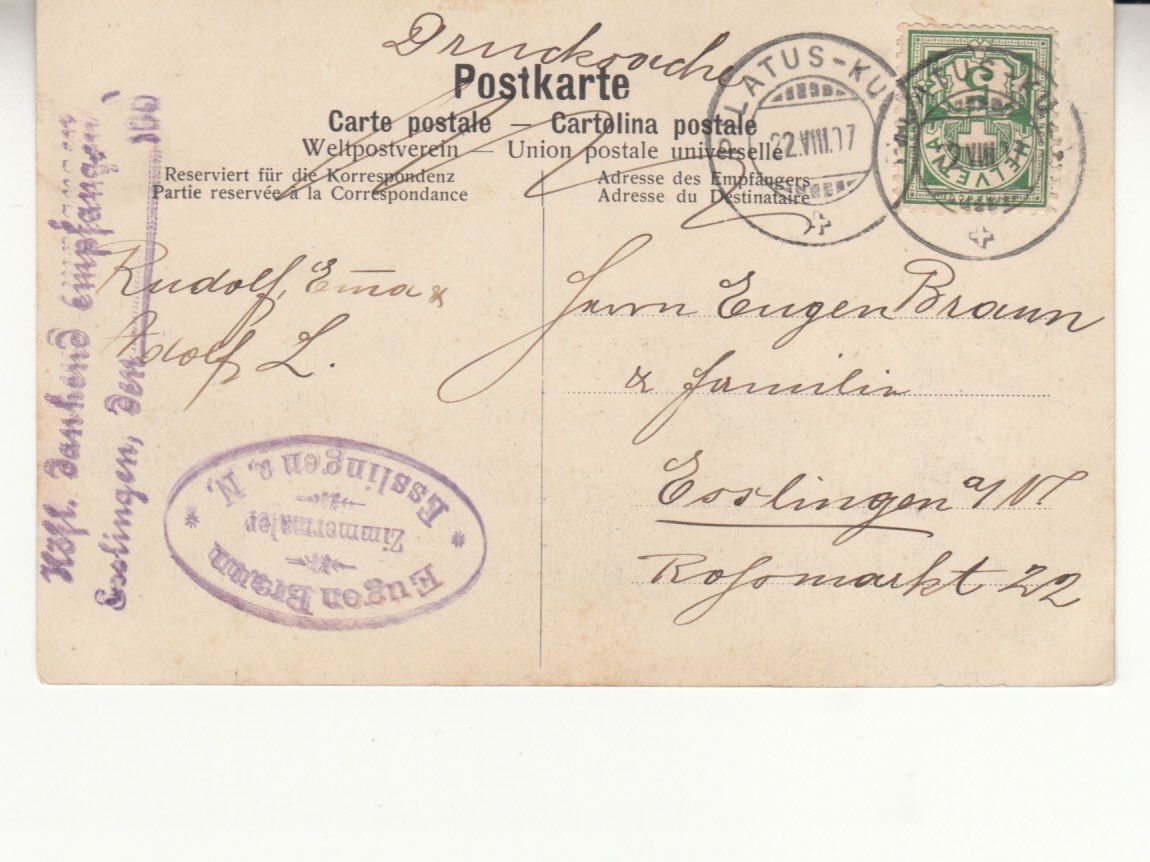 Drucksache
Postkarte
Carte postale — Cartolina postale
Weltpostverein — Union postale universelle
Reserviert für die Korrespondenz
Partie reservée à la Correspondance
Adresse des Empfängers
Adresse du Destinataire
PILATUS-KU
22.VIII.07
PILATUS-KU
22.VIII.
5
HELVETIA
Rudolf, Em̄a &
Adolf L.
Herrn Eugen Braun
& Familie
Esslingen a/N
Roßmarkt 22
Höfl. dankend empfangen
Esslingen, den 190
Eugen Braun
Zimmermaler
Esslingen a. N.